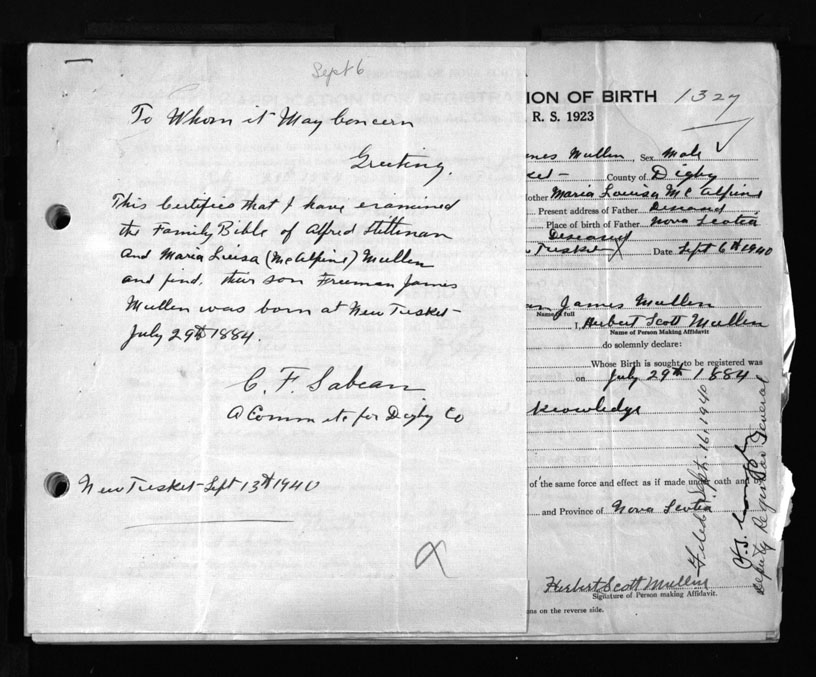 Sept 6
To Whom it May Concern
Greeting.
This Certifies that I have examined
the Family Bible of Alfred Stillman
and Maria Luisa (McAlpine) Mullen
and find their son Freeman James
Mullen was born at New Tusket
July 29th 1884.
C. F. Sabean
A Commr etc for Digby Co
New Tusket Sept 13th 1940
ION OF BIRTH 1327
R. S. 1923
mes Mullen, Sex Male
ket County of Digby
other Maria Louisa McAlpine
Present address of Father Deceased
Place of birth of Father Nova Scotia
Deceased
Tusket Date Sept 6th 1940
an James Mullen
Name in full
I, Herbert Scott Mullen
Name of Person Making Affidavit
do solemnly declare:
Whose Birth is sought to be registered was
on July 29th 1884
knowledge
of the same force and effect as if made under oath and by
and Province of Nova Scotia
Herbert Scott Mullen
Signature of Person making Affidavit.
ns on the reverse side.
Filed Sept. 16, 1940
Deputy Registrar General